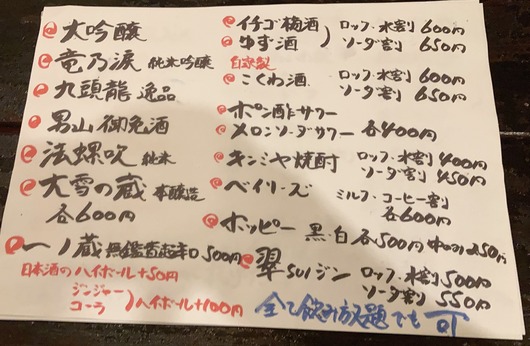 大吟醸
竜乃涙 純米吟醸
九頭龍 逸品
男山 御免酒
法螺吹 純米
大雪の蔵 本醸造
各600円
一ノ蔵 無鑑査超辛口 500円
日本酒のハイボール+50円
ジンジャー
コーラ
ハイボール+100円
イチゴ梅酒
ゆず酒
ロック・水割 600円
ソーダ割 650円
自家製
こくわ酒
ロック・水割 600円
ソーダ割 650円
ポン酢サワー
メロンソーダサワー 各400円
キンミヤ焼酎
ロック・水割 400円
ソーダ割 450円
ベイリーズ
ミルク・コーヒー割
各600円
ホッピー 黒・白 各500円 中のみ250円
翠 SUIジン
ロック・水割 500円
ソーダ割 550円
全て飲み放題でも可